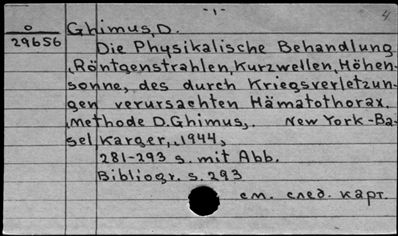 - 1 -
4
O
29656
Ghimus, D.
Die Physikalische Behandlung
,Röntgenstrahlen, Kurzwellen, Höhen-
sonne, des durch Kriegsverletzun-
gen verursachten Hämatothorax.
,Methode D. Ghimus,. New York - Ba-
sel, Karger, ,1944,
281-293 s. mit Abb.
Bibliogr. s. 293
см. след. карт.